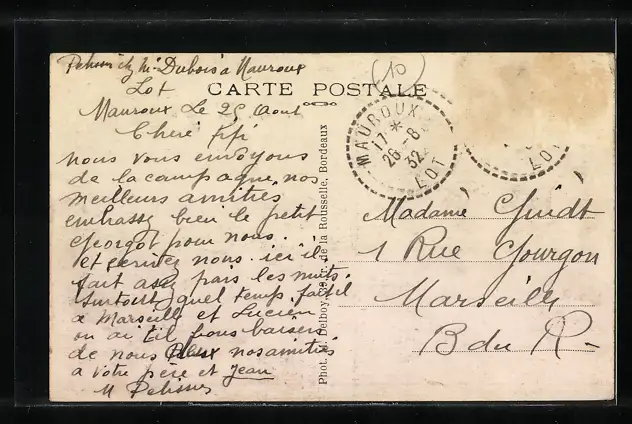 chez Mr Dubois à Mauroux
Lot
CARTE POSTALE
(10)
Mauroux Le 25 Aout
Chere Fifi
nous vous envoyons
de la campagne, nos
meilleurs amitiés
embrassy bien le petit
Georgot pour nous.
et ecrivez nous. ici il
fait assez frais les nuits.
surtout, quel temps fait il
a Marseille et Lucien
ou ai til bons baisers
de nous Deux nos amitiés
a votre père et Jean
M
Phot. Delboy, de la Rousselle, Bordeaux
MAUROUX
17 *
26-8
32
LOT
LOT
Madame Guidt
1 Rue Gourgon
Marseille
B du R-